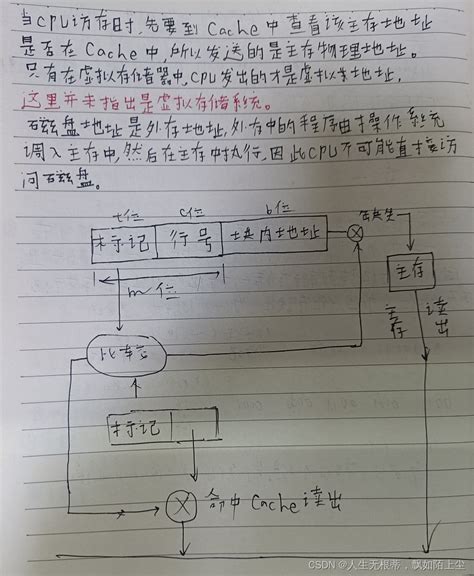 当CPU访存时,先要到Cache中查看该主存地址
是否在Cache中,所以发送的是主存物理地址。
只有在虚拟存储器中,CPU发出的才是虚拟地址,
这里并未指出是虚拟存储系统。
磁盘地址是外存地址,外存中的程序由操作系统
调入主存中,然后在主存中执行,因此CPU不可能直接访
问磁盘。
t位 c位 b位
标记 行号 块内地址
失
主存
m位
主存 读出
比较
标记
命中Cache读出
CSDN @人生无根蒂,飘如陌上尘